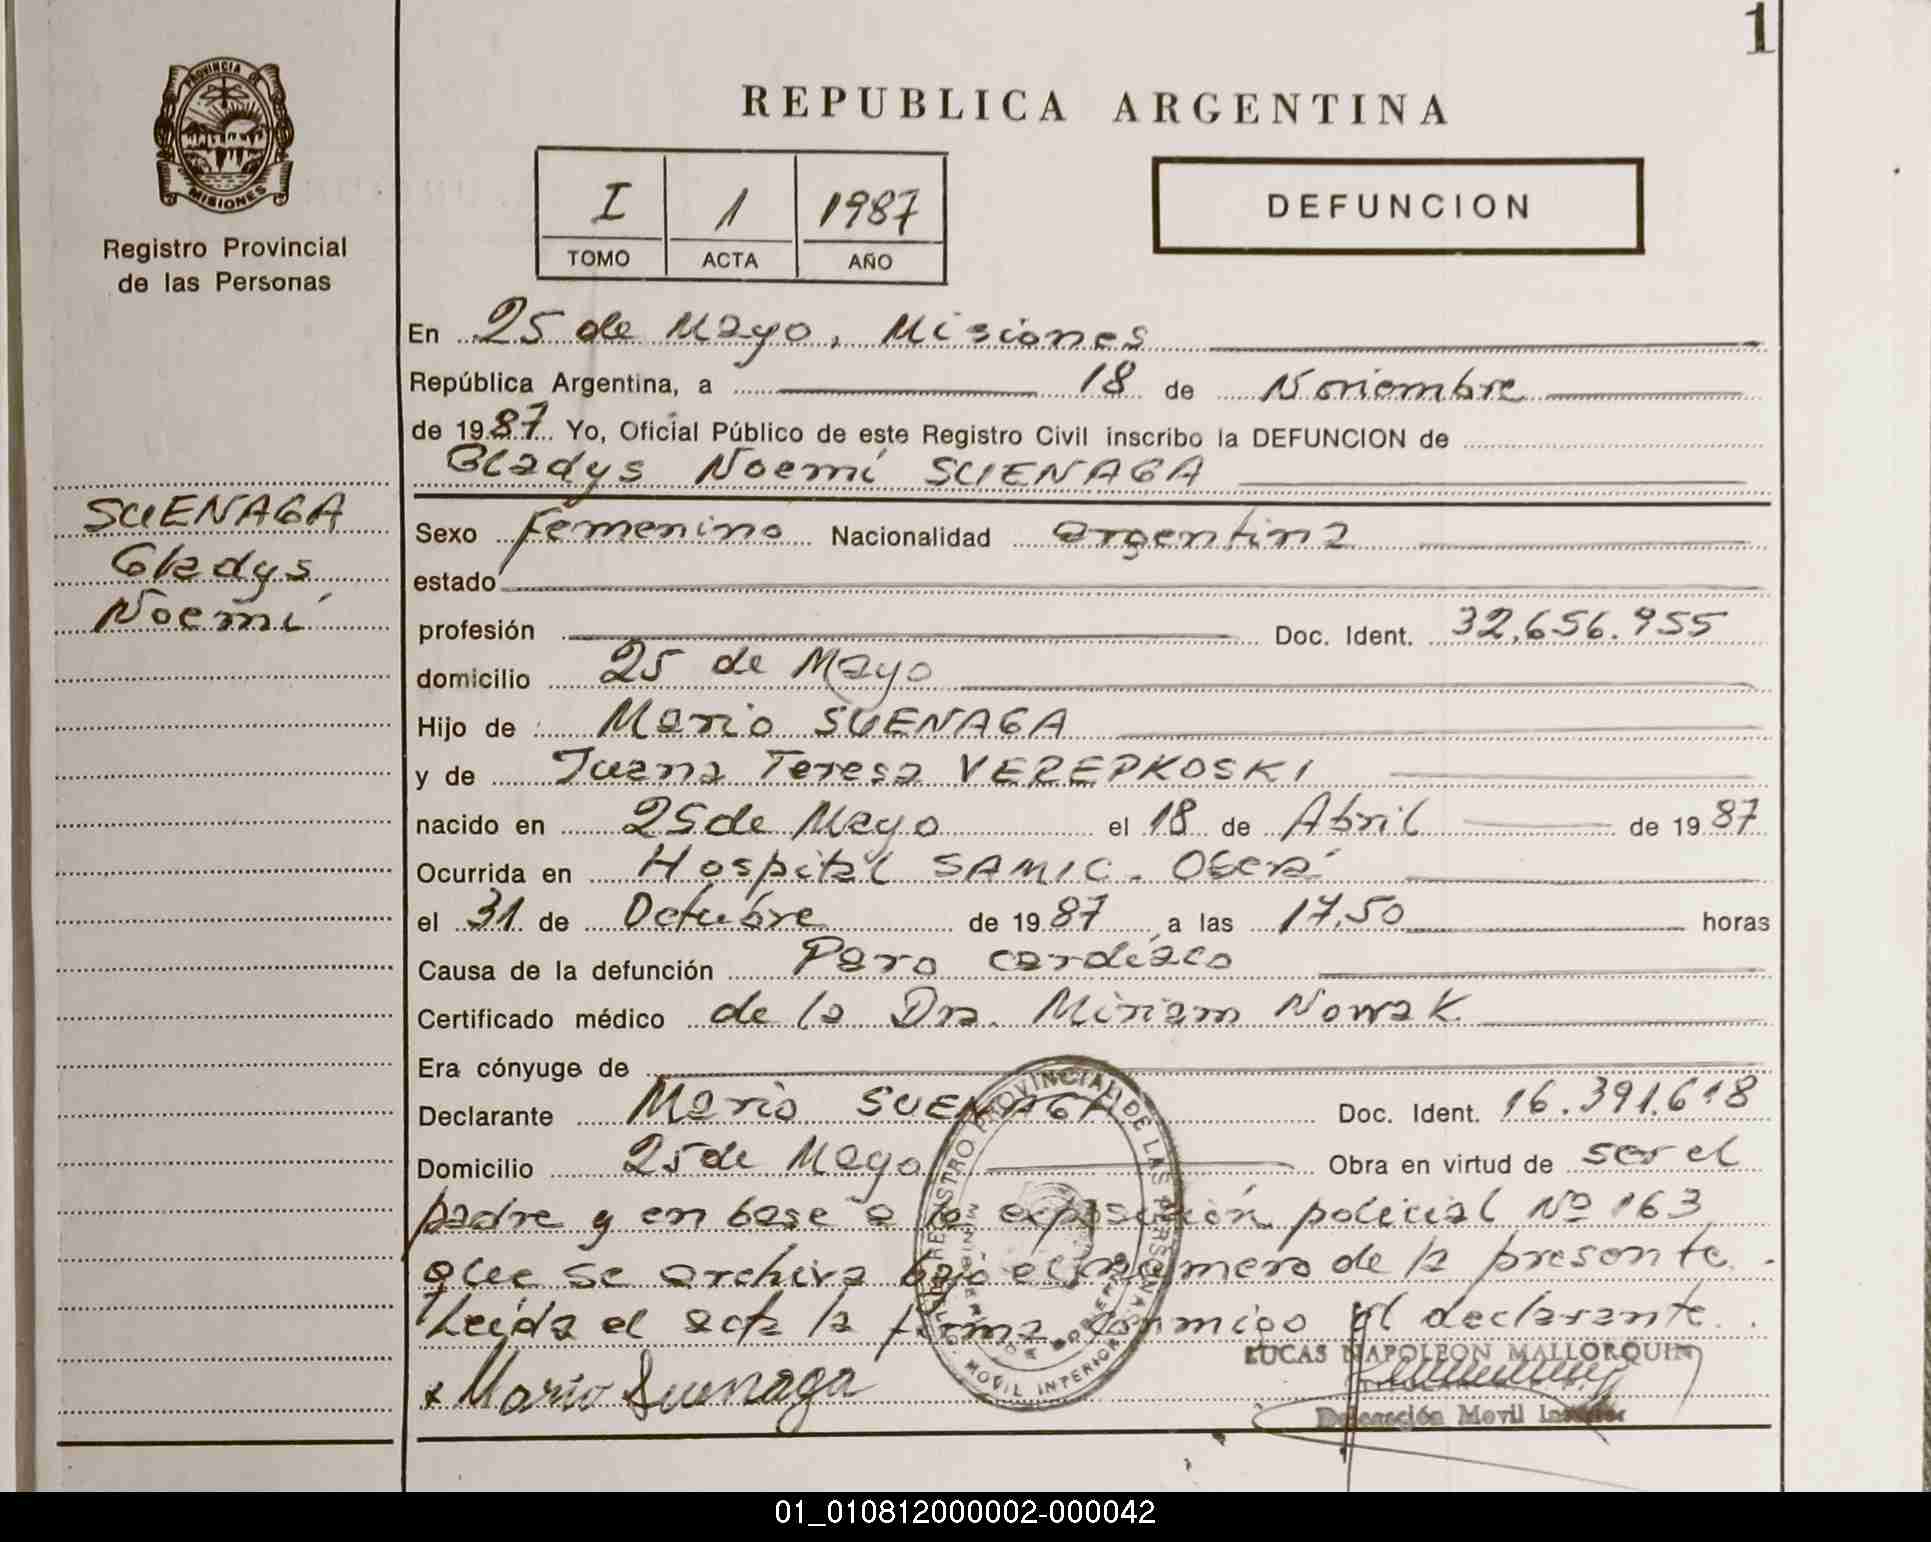 1
PROVINCIA DE
MISIONES
Registro Provincial
de las Personas
REPUBLICA ARGENTINA
I 1 1987
TOMO ACTA AÑO
DEFUNCION
En 25 de Mayo, Misiones
República Argentina, a 18 de Noviembre
de 1987 Yo, Oficial Público de este Registro Civil inscribo la DEFUNCION de
Gladys Noemí SUENAGA
SUENAGA
Gladys
Noemí
Sexo femenino Nacionalidad argentina
estado
profesión Doc. Ident. 32.656.955
domicilio 25 de Mayo
Hijo de Mario SUENAGA
y de Juana Teresa VEREPKOSKI
nacido en 25 de Mayo el 18 de Abril de 1987
Ocurrida en Hospital SAMIC. Oberá
el 31 de Octubre de 1987 a las 17,50 horas
Causa de la defunción Paro cardíaco
Certificado médico de la Dra. Miriam Nowak
Era cónyuge de
Declarante Mario SUENAGA Doc. Ident. 16.391.618
Domicilio 25 de Mayo Obra en virtud de ser el
padre y en base a la exposición policial Nº 163
que se archiva bajo el número de la presente.
Leída el acta la firma conmigo el declarante.
x Mario Suenaga
REGISTRO PROVINCIAL DE LAS PERSONAS
MOVIL INTERIOR
LUCAS NAPOLEON MALLORQUIN
Delegación Movil Interior
01_010812000002-000042